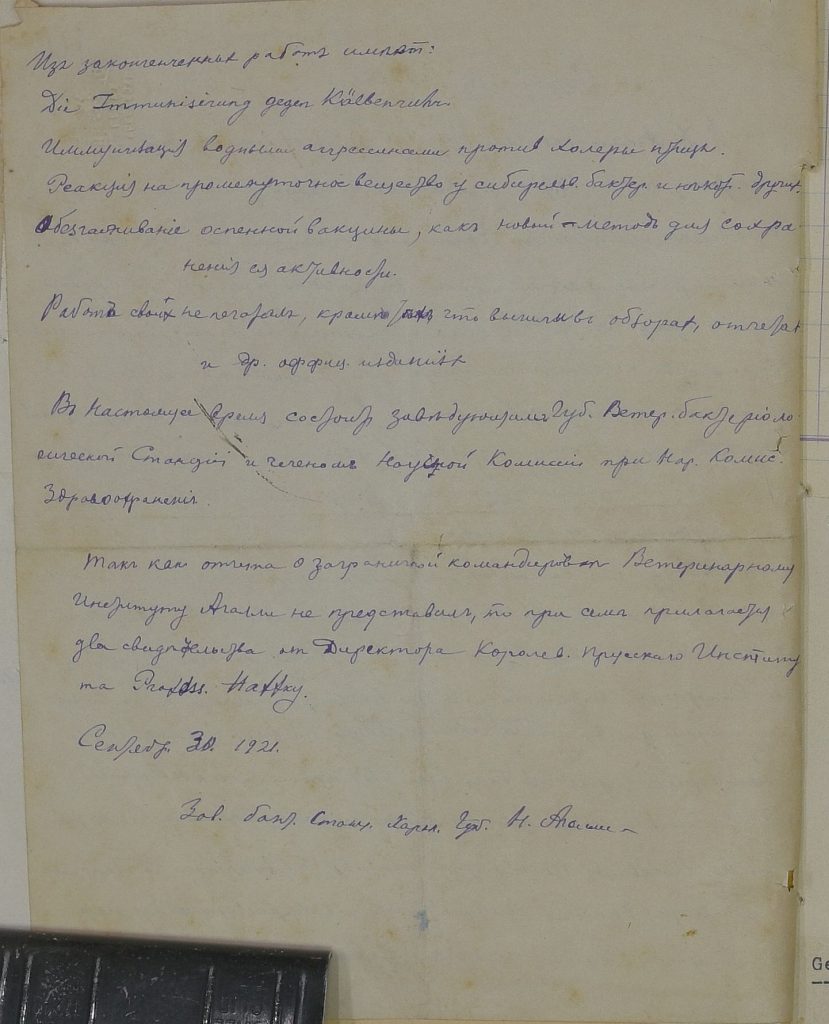 Изъ законченныхъ работъ имѣютъ:
Die Immunisirung gegen Kälberruhr.
Иммунизація водными агрессинами противъ холеры птицъ.
Реакція на промежуточное вещество у сибиреязв. бактер. и нѣкот. другихъ.
Обезгаживаніе оспенной вакцины, какъ новый методъ для сохра-
ненія ея активности.
Работъ своихъ не печаталъ, кромѣ что вышли въ обзорахъ, отчетахъ
и др. оффиц. изданіяхъ
Въ настоящее время состою завѣдующимъ Губ. Ветер. бактеріоло-
гической Станціи и членомъ Научной Комиссіи при Нар. Комис.
Здравоохраненія.
Такъ какъ отчета о заграничной командировкѣ Ветеринарному
Институту Агалли не представилъ, то при семъ прилагается
два свидѣтельства от Директора Королев. Прусскаго Институ
та Profess.
Сентябр. 30. 1921.
Зав. бакт. Станц. Харьк. Губ. Н. Агалли
Ge